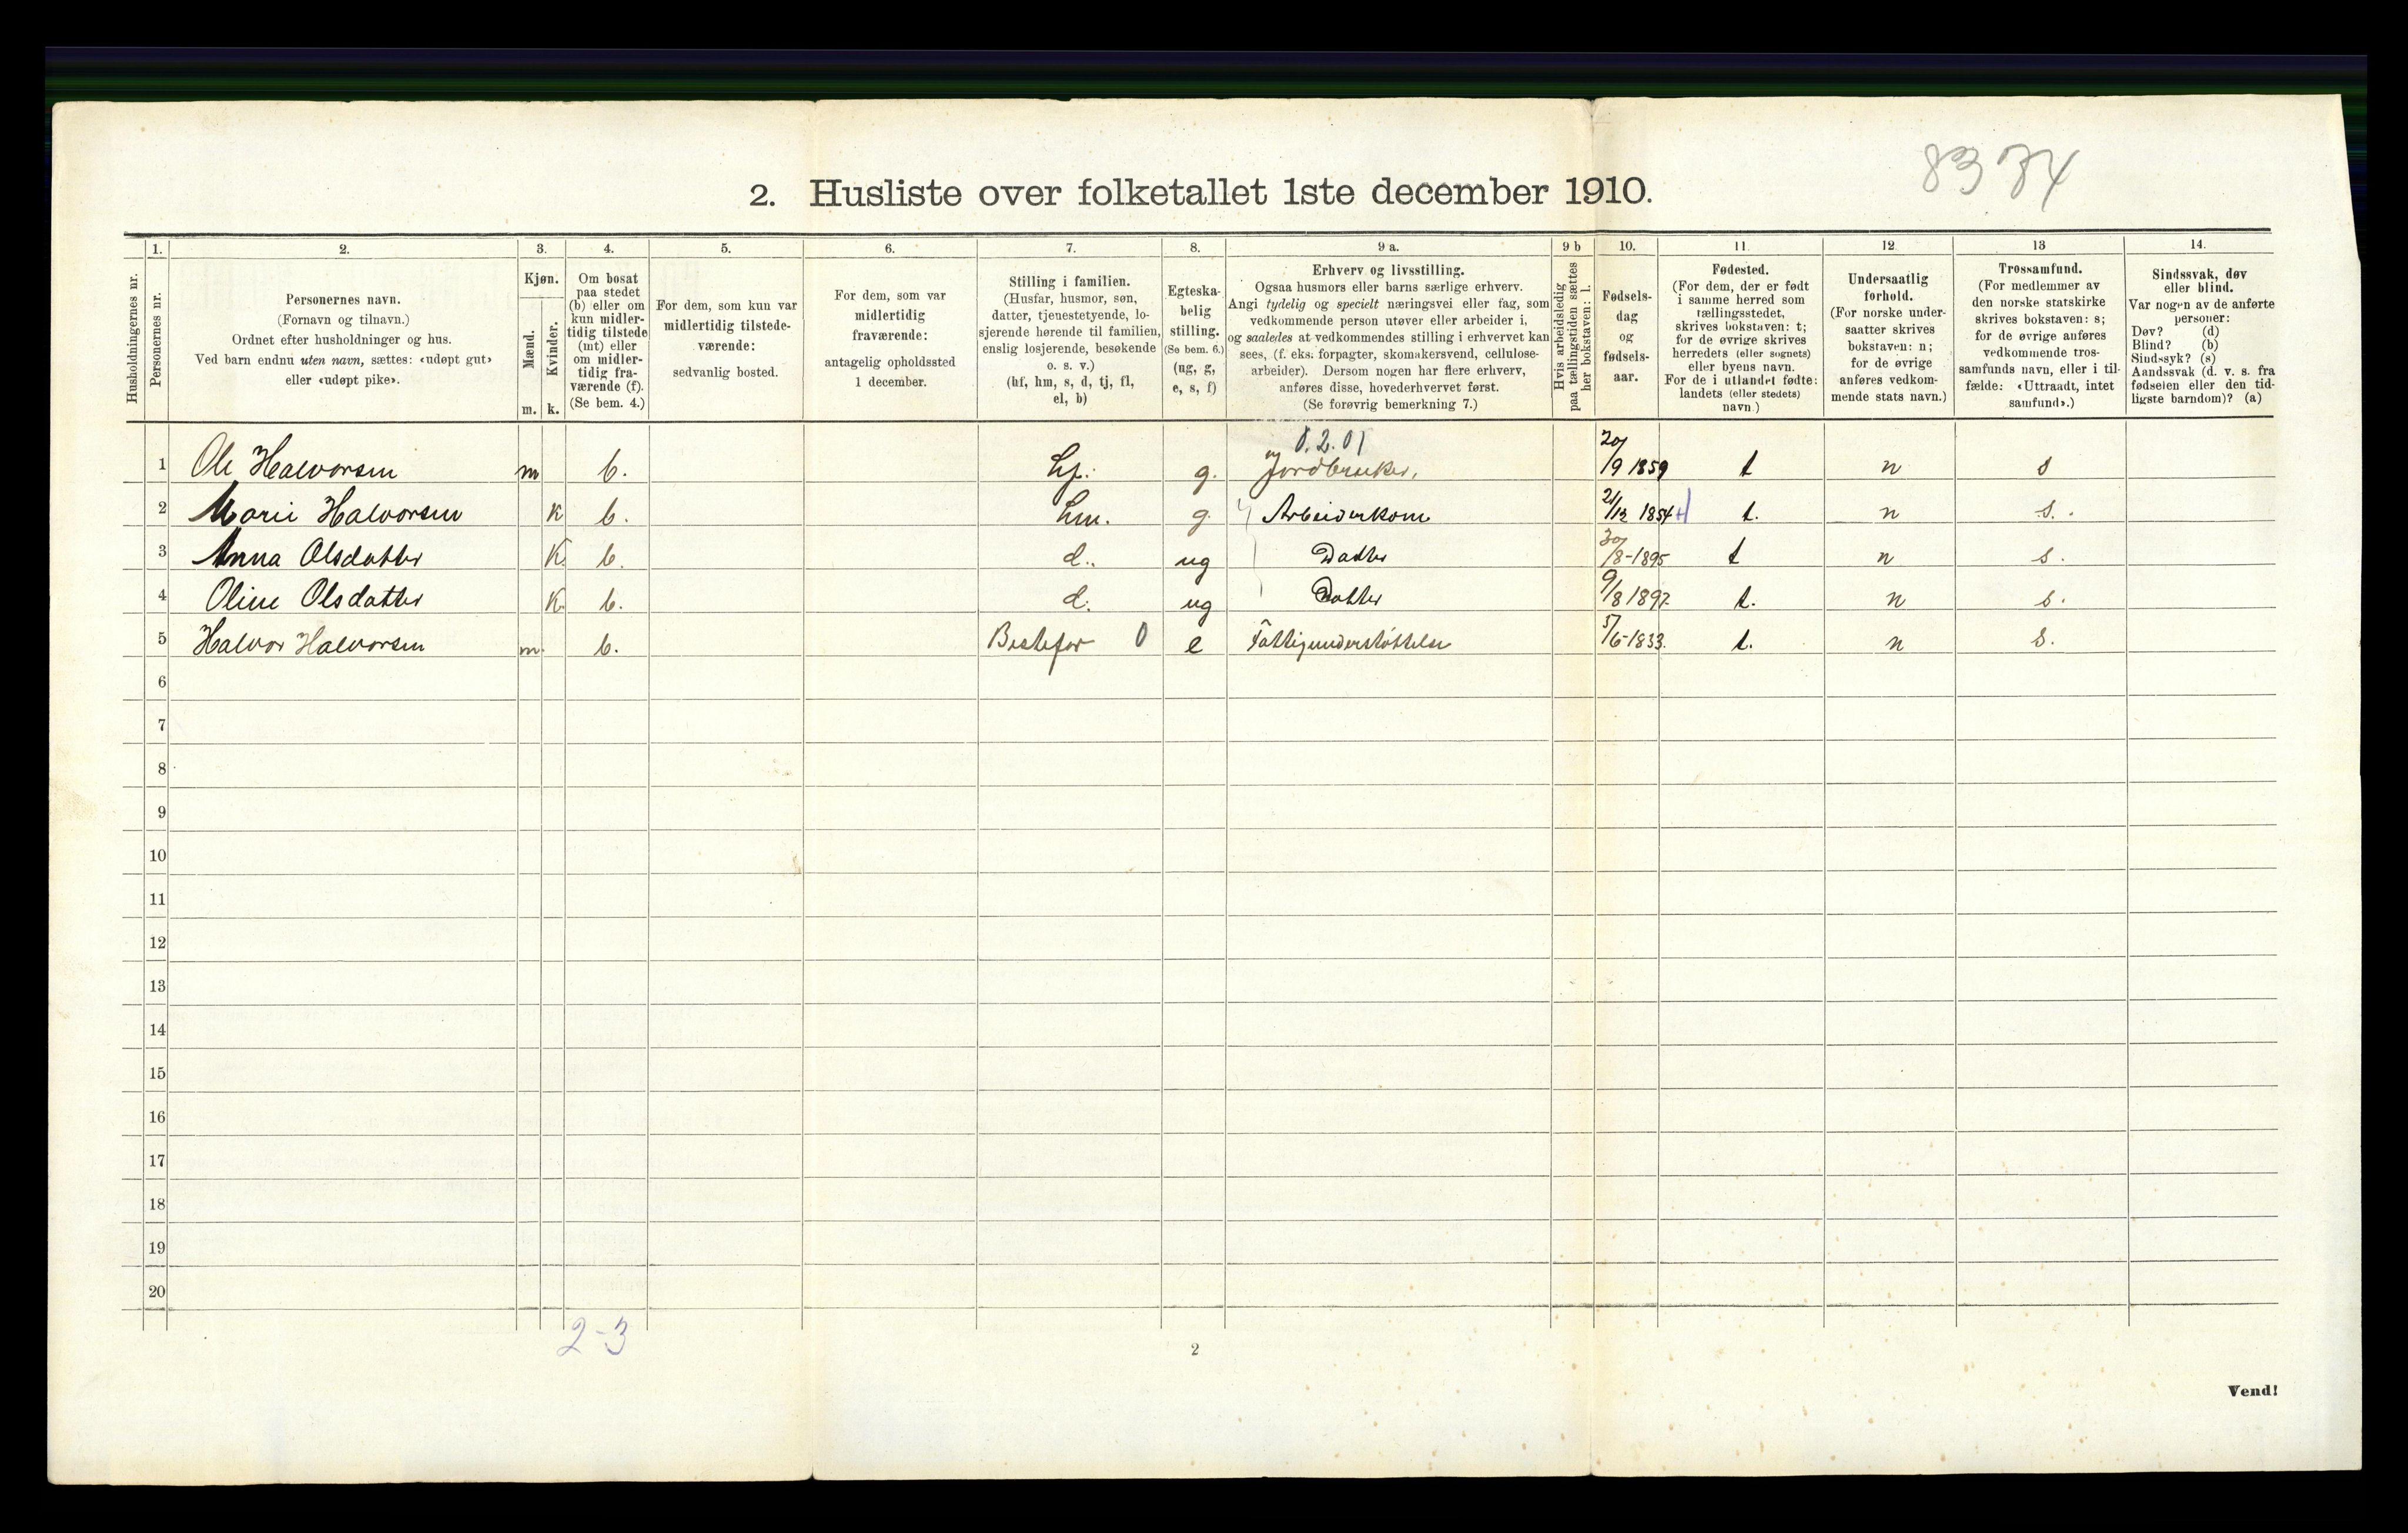 8374
2. Husliste over folketallet 1ste december 1910.
Husholdningernes nr.
1.
Personernes nr.
2.
Personernes navn.
(Fornavn og tilnavn.)
Ordnet efter husholdninger og hus.
Ved barn endnu uten navn, sættes: «udøpt gut»
eller «udøpt pike».
3.
Kjøn.
Mænd.
Kvinder.
m. k.
4.
Om bosat
paa stedet
(b) eller om
kun midler-
tidig tilstede
(mt) eller
om midler-
tidig fra-
værende (f).
(Se bem. 4.)
5.
For dem, som kun var
midlertidig tilstede-
værende:
sedvanlig bosted.
6.
For dem, som var
midlertidig
fraværende:
antagelig opholdssted
1 december.
7.
Stilling i familien.
(Husfar, husmor, søn,
datter, tjenestetyende, lo-
sjerende hørende til familien,
enslig losjerende, besøkende
o. s. v.)
(hf, hm, s, d, tj, fl,
el, b)
8.
Egteska-
belig
stilling.
(Se bem. 6.)
(ug, g,
e, s, f)
9 a.
Erhverv og livsstilling.
Ogsaa husmors eller barns særlige erhverv.
Angi tydelig og specielt næringsvei eller fag, som
vedkommende person utøver eller arbeider i,
og saaledes at vedkommendes stilling i erhvervet kan
sees, (f. eks. forpagter, skomakersvend, cellulose-
arbeider). Dersom nogen har flere erhverv,
anføres disse, hovederhvervet først.
(Se forøvrig bemerkning 7.)
9 b
Hvis arbeidsledig
paa tællingstiden sættes
her bokstaven: l.
10.
Fødsels-
dag
og
fødsels-
aar.
11.
Fødested.
(For dem, der er født
i samme herred som
tællingsstedet,
skrives bokstaven: t;
for de øvrige skrives
herredets (eller sognets)
eller byens navn.
For de i utlandet fødte:
landets (eller stedets)
navn.)
12
Undersaatlig
forhold.
(For norske under-
saatter skrives
bokstaven: n;
for de øvrige
anføres vedkom-
mende stats navn.)
13
Trossamfund.
(For medlemmer av
den norske statskirke
skrives bokstaven: s;
for de øvrige anføres
vedkommende tros-
samfunds navn, eller i til-
fælde: «Uttraadt, intet
samfund».)
14.
Sindssvak, døv
eller blind.
Var nogen av de anførte
personer:
Døv? (d)
Blind? (b)
Sindssyk? (s)
Aandssvak (d. v. s. fra
fødselen eller den tid-
ligste barndom)? (a)
0.2.01
1 Ole Halvorsen m b. hf. g. Jordbruker, 20/9 1859 t n s
2 Marie Halvorsen k b. hm. g. Arbeiderkone 21/12 1854 t. n s.
3 Anna Olsdatter K. b. d. ug Datter 30/8-1895 t n s.
4 Oline Olsdatter K. b. d. ug Datter 9/8 1897. t. n s.
5 Halvor Halvorsen m. b. Bestefar 0 e Fattigunderstøttelse 5/6-1833. t. n s.
6
7
8
9
10
11
12
13
14
15
16
17
18
19
20
2-3
2
Vend!